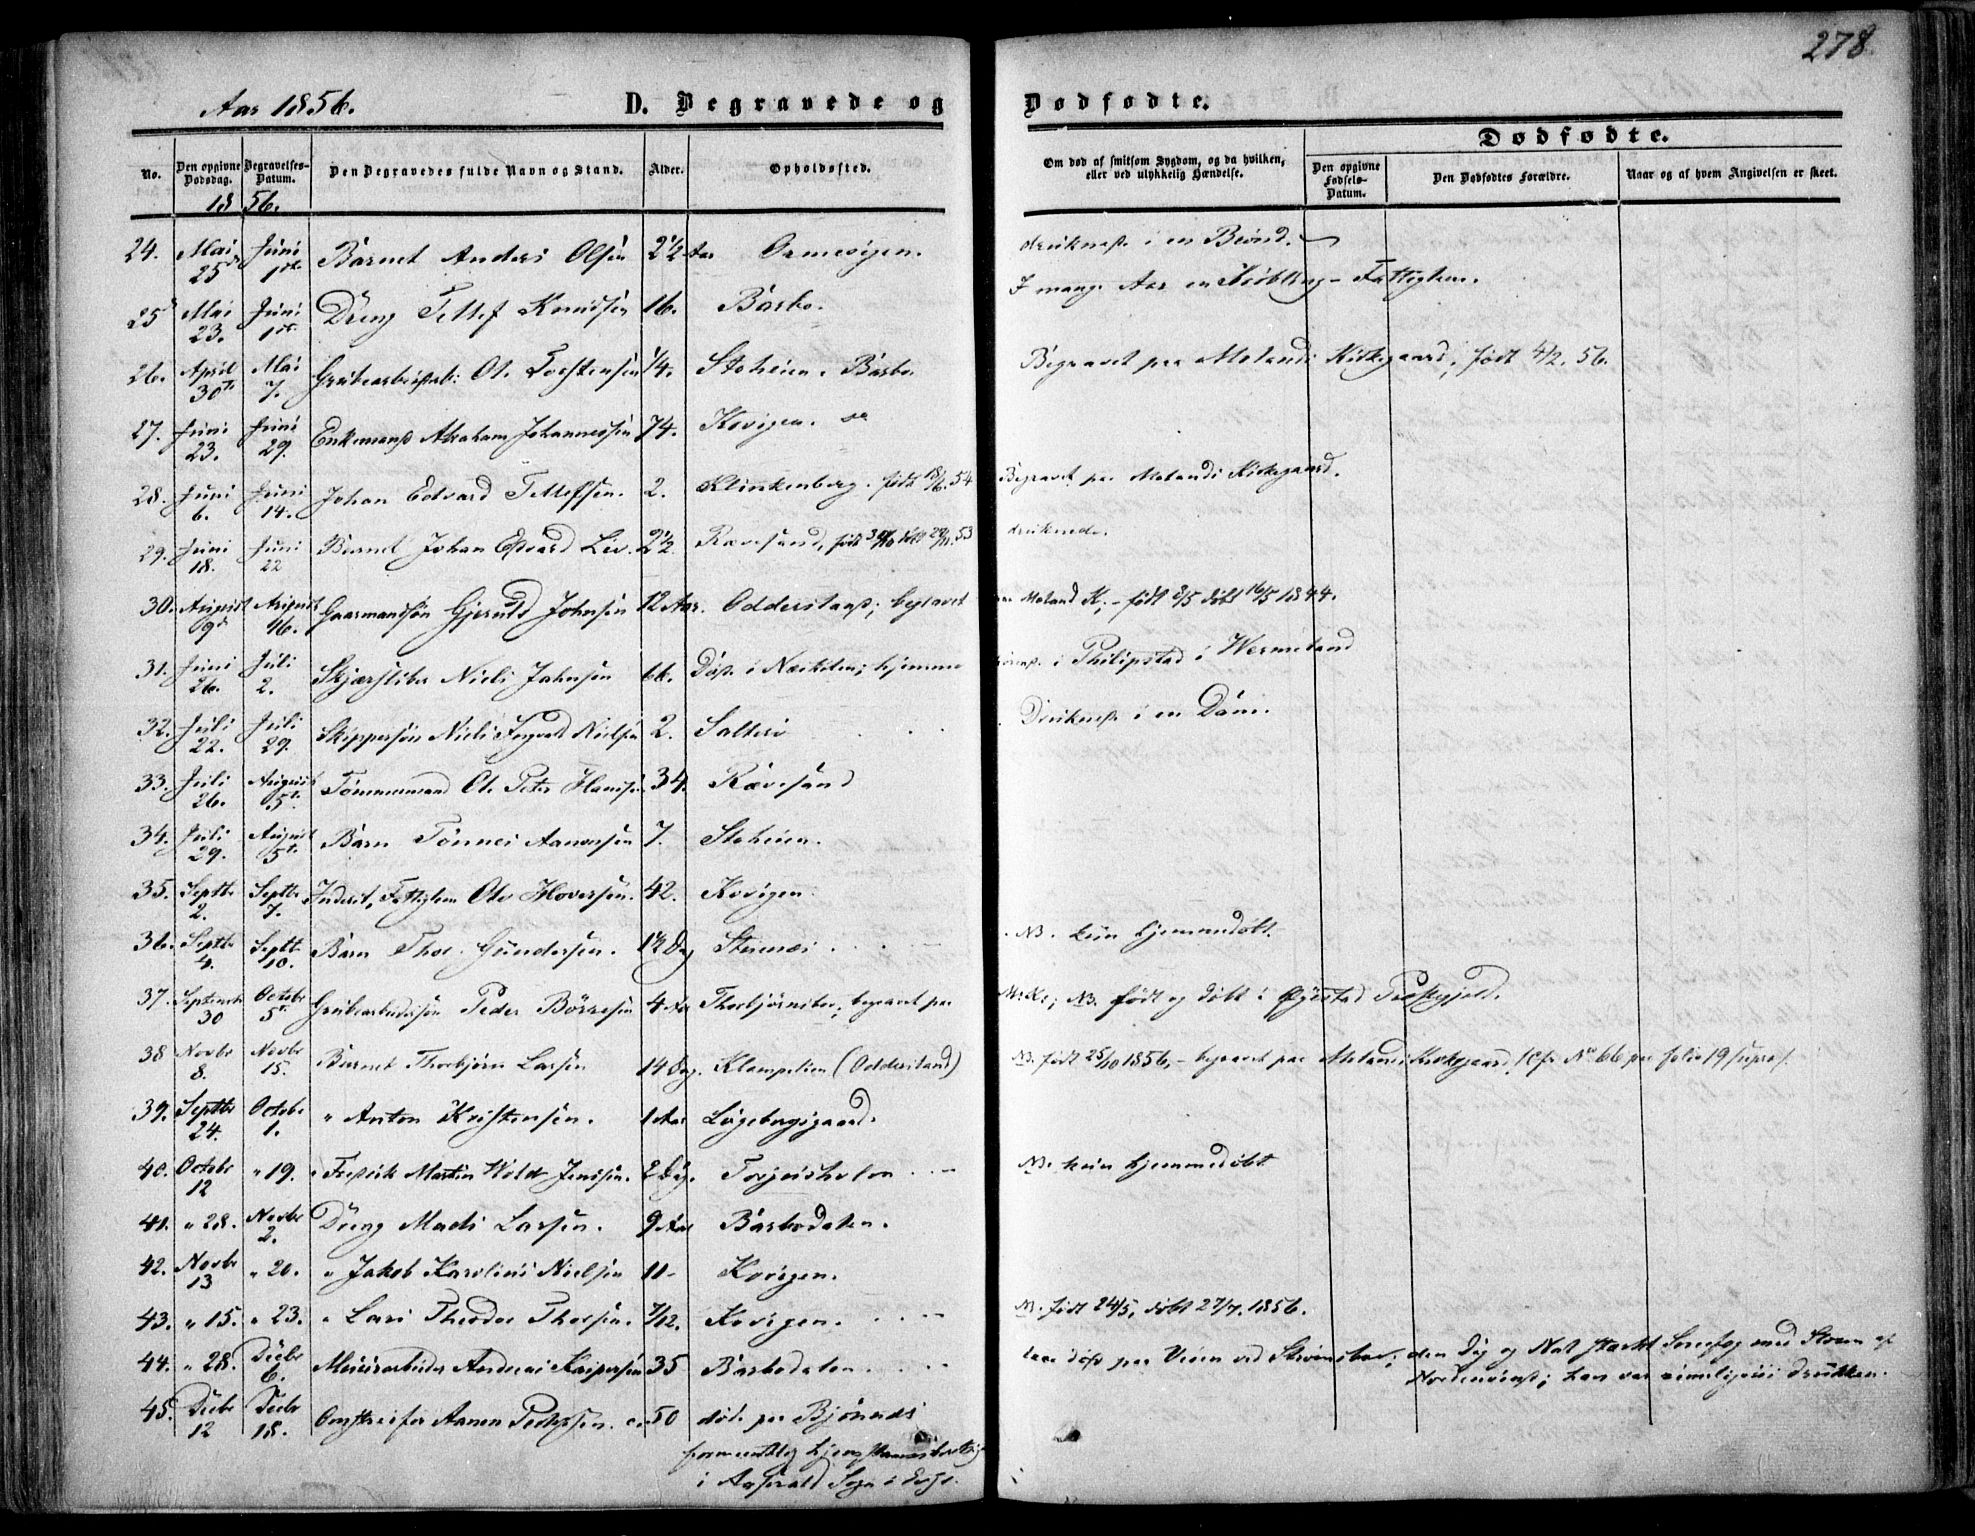 278
Aar 1856. D. Begravede og Dødfødte.
Dødfødte.
No. Den opgivne Dødsdag. Begravelses-Datum. Den Begravedes fulde Navn og Stand. Alder. Opholdssted. Om død af smitsom Sygdom, og da hvilken, eller ved ulykkelig Hændelse. Den opgivne Fødsels-Datum. Den Dødfødtes Forældre. Naar og af hvem Angivelsen er skeet.
1856.
24. Mai 25 Juni 1ste Barnet Anders Olsen 2 1/2 Aar Ormevigen. druknede i en Brønd.
25 Mai 23. Juni 1ste Dreng Tellef Knudsen 16. Barbo. I mange Aar en Krøbling - Fattiglem.
26. April 30te Mai 7. Ole Torstensen 1/4. Stoheien. Barbo. Begravet paa Molands Kirkegaard, født 4/2. 56.
27. Juni 23. Juni 29. Enkemand Abraham Johannessen 74. Kovigen.
28. Juni 6. Juni 14. Johan Edvard Tellefsen. 2. Klinkenberg. født 18/6. 54 Begravet paa Molands Kirkegaard.
29. Juni 18. Juni 22 Barnet Johan Edvard Liv. 2 1/2 Rævesand, født døbt 53 druknede.
30. August 9de August 16. Gaarmandsøn Gjeruld Johnsen 12 Aar. Odderstaa; begravet paa Moland K; - født 3/5 døbt 16/5 1844.
31. Juni 26. Juli 2. Skjærsliber Niels Jahnsen 66. Døde i Neskilen; hjemme i Philipstad i Wermeland
32. Juli 22. Juli 29. Skippersøn Niels Ingvald Nielsen 2. Salterø Druknede i en Dam.
33. Juli 26. August 5te Tømmermand Ole Peter Hansen 34. Rævesand
34. Juli 29. August 5te Barn Tønnes Aanonsen 7. Stoheien.
35. Septbr 2. Septbr 7. Inderst, Fattiglem Ole Hoversen. 42. Kovigen.
36. Septbr 4. Septbr 10. Barn Thor Gundersen. Dag Steinnæs NB. kun hjemmedøbt.
37. Septembr 30 Octobr 5te Grubearbeidersøn Peder Børresen 4 Aar Thorbjørnsboe; begravet paa M. K.; NB. født og døbt i Øyestad Præstegjeld.
38 Novbr 8. Novbr 15. Barnet Thorbjørn Larsen 14 Dag. Klampelien (Odderstaad) NB. født 25/10 1856, - begravet paa Molands Kirkegaard, (cfr No 66 paa folio 19 supra).
39. Septbr 24. Octobr 1. " Anton Kristensen. 1 Aar Løgebergsgaard.
40. Octobr 12 " 19. " Fredrik Martin Wold Jenssen. 2 Dag. Torjusholmen NB. kun hjemmedøbt
41. " 28. Novbr 2. Dreng Mads Larsen. 9 Aar Barbodalen.
42. Novbr 13 " 20. " Jakob Karolius Nielsen 11 - Kovigen.
43. " 15. " 23. " Lars Theodor Thorsen. 7/12. Kovigen. NB. født 24/5, døbt 27/7. 1856.
44. " 28. Decbr 6. Andreas Kaspersen 35 Barbodalen laae død paa Veien ved den Dag og Nat stærkt Snefog med Storm af Nordenvind; han var rimeligviis drukken.
45. Decbr 12 Decbr 18. Omstreifer Aanon Pedersen. ca. 50 død paa Bjønnes
formentlig hjemstavnsberettiget
i Aaserald Sogn i